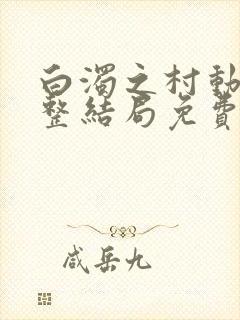 白濁之村動
整結局免費
咸岳九